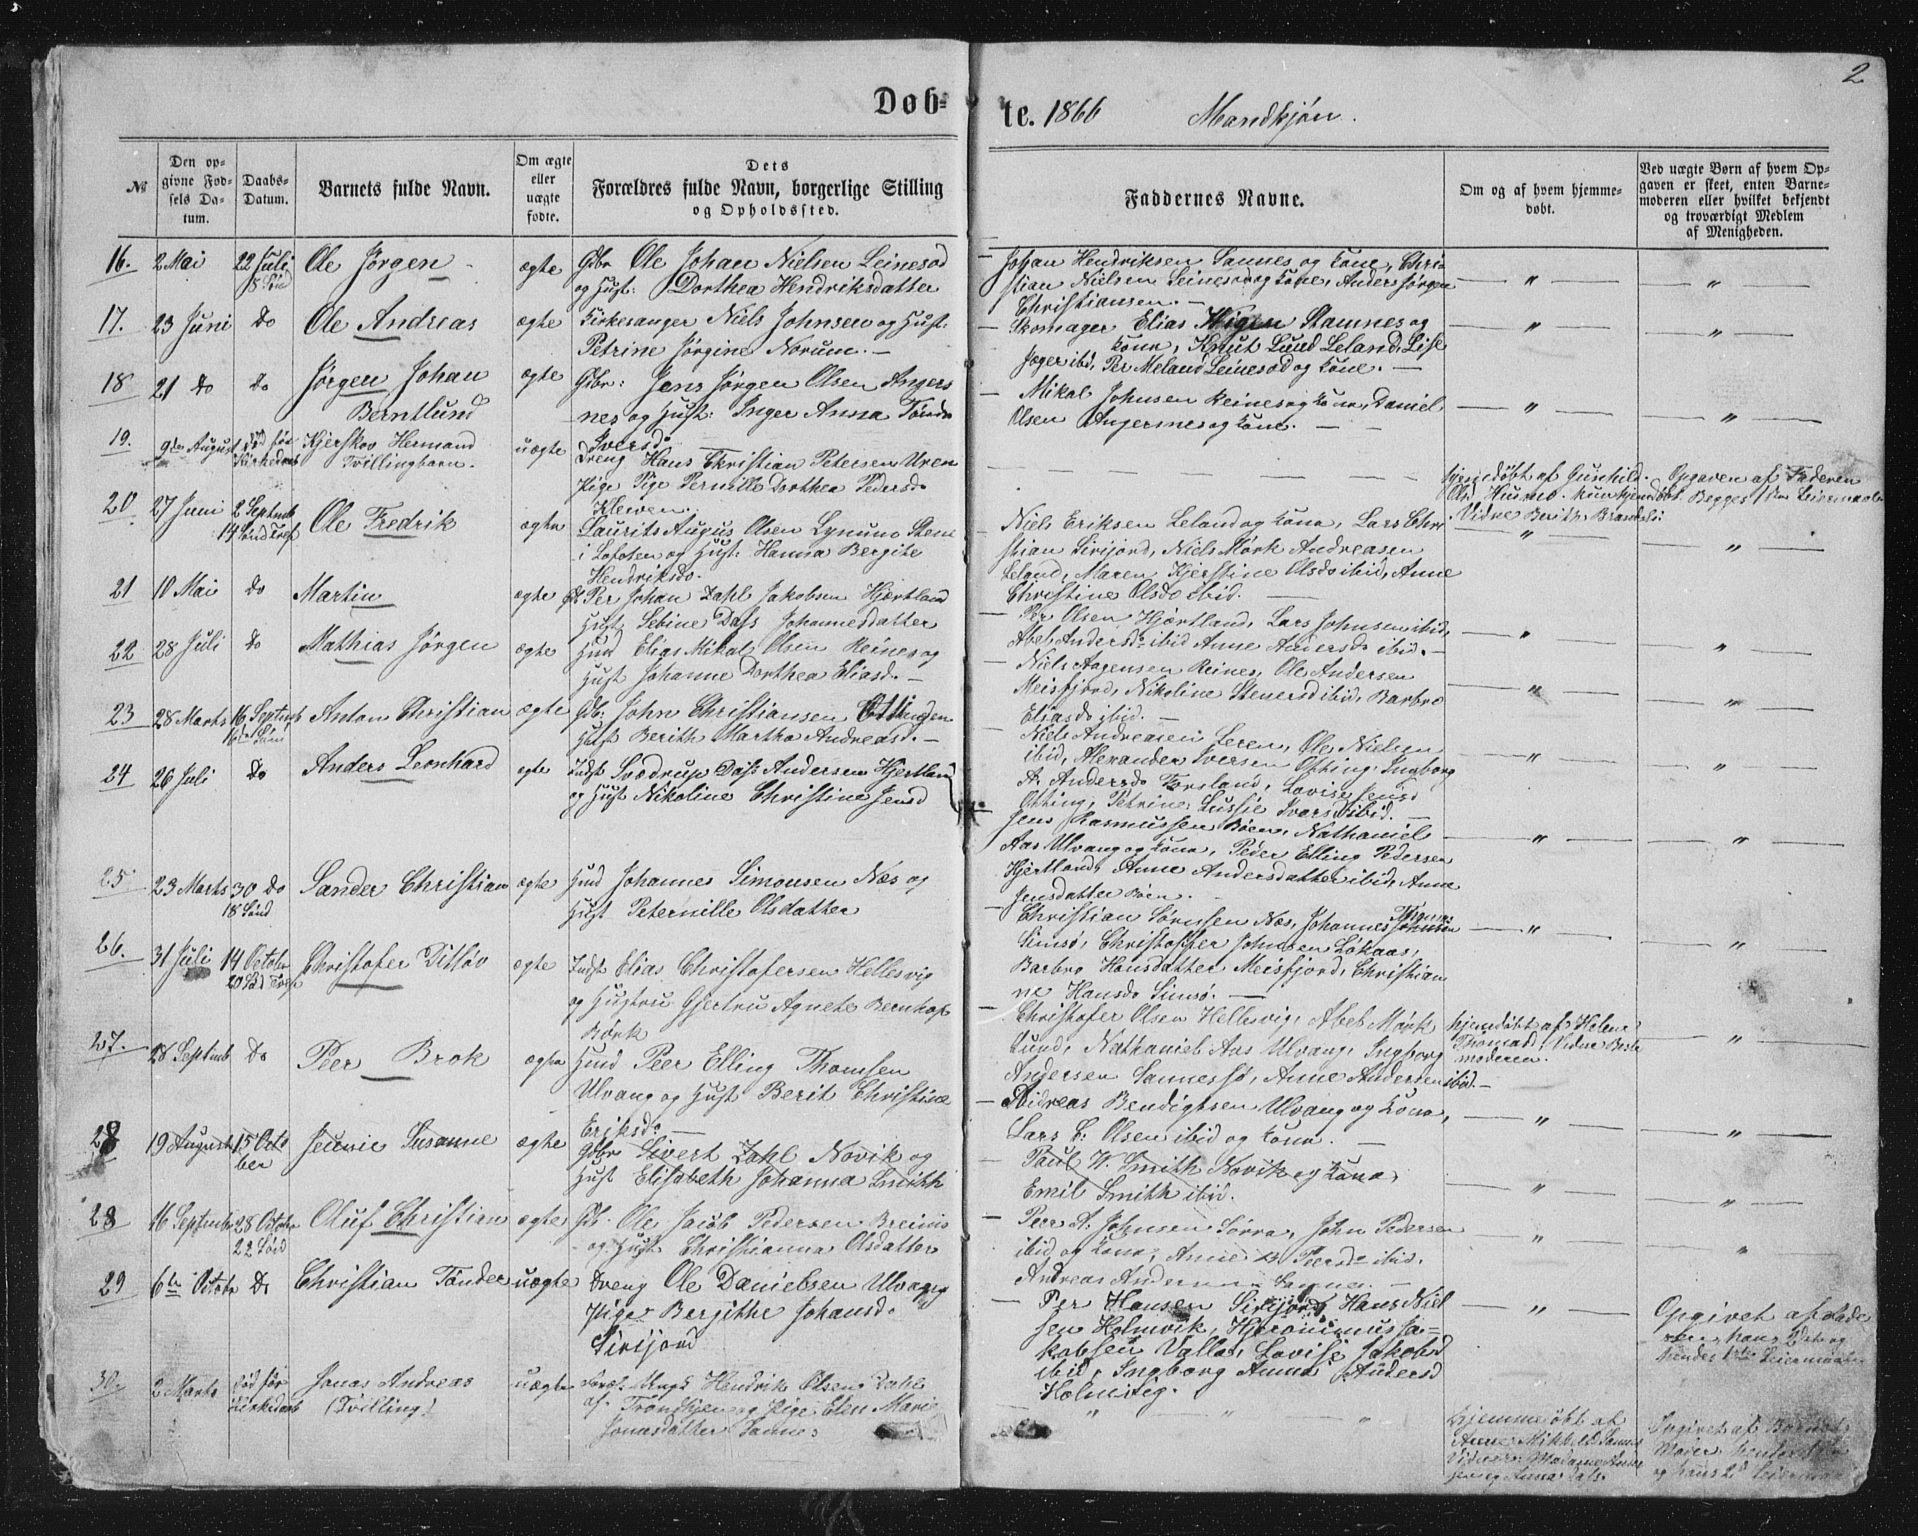 2
Døb-
te. 1866 Mandkjön.
№
Den op-
givne Fød-
sels Da-
tum.
Daabs-
Datum.
Barnets fulde Navn.
Om ægte
eller
uægte
fødte.
Dets
Forældres fulde Navn, borgerlige Stilling
og Opholdssted.
Faddernes Navne.
Om og af hvem hjemme-
døbt.
Ved uægte Børn af hvem Op-
gaven er skeet, enten Barne-
moderen eller hvilket bekjendt
og troværdigt Medlem
af Menigheden.
16. 2 Mai 22 Juli Ole Jørgen ægte Gbr Ole Johan Nielsen Leinesod
og Hust: Dorthea Hendriksdatter
Johan Hendriksen Sannes og Kone, Chri-
stian Nielsen Leinesod og Kone, Anders Jørgen
Christiansen.
17. 23 Juni do Ole Andreas ægte Kirkesanger Niels Johnsen og Hust:
Petrine Jörgine Norum.
Skomager Elias Stamnes og
Kone, Knut Lund Leland, Lise
Jæger ibd, Per Meland Leinesod og Kone.
18 21 do do Jörgen Johan ægte Gbr: Jens Jørgen Olsen Angers
Berntlund nes og Hust: Inger Anna
Iversd
Mikal Johnsen Reines og Kone, Daniel
Olsen Angersnes og Kone.
19. 9de August Kjerskov Hermand uægte
Tvillingbarn.
Dreng Hans Christian Petersen Uren
Pige Pige Pernille Dorthea Pedersd
Kleven.
Hjemdøbt af Gunhild
Opgaven af Faderen
20 27 Juni 2 Septemb Ole Fredrik ægte
Laurits Augus Olsen
i Lofoten og Hust: Hanna Bergite
Hendriksd.
Niels Eriksen Leland og Kone, Lars Chri
stian Sirijord, Niels Mørk Andreasen
Leland, Maren Kjerstine Olsd ibid, Anne
Christine Olsd ibid.
21 10 Mai do Martin ægte Per Johan Zahl Jakobsen Hjertland
Hust Sebine Dass Johannesdatter
Per Olsen Hjertland, Lars Johnsen ibid,
Abel Andersd ibid Anne Andersd ibid.
22 28 Juli do Mathias Jörgen ægte Hmd Elias Mikal Olsen Reines og
Hust Johanne Dorthea Eliasd.
Niels Aagensen Reines, Ole Andersen
Meisfjord, Nikoline Stenersd ibid, Barbro
Eliasd ibid.
23 28 Marts 16 Septmb Anton Christian ægte Gb: John Christiansen
Hust Berith Martha Andreasd.
Niels Andreasen Leren, Ole Nielsen
ibid, Alexander Iversen Otting, Ingborg
A. Andersd Forsland, Lovise Jensd
Otting, Petrine Lussie Ivarsd ibid.
24 26 Juli do Anders Leonhard egte Indst Svedrup Dass Andersen Hjertland
og Hust Nikoline Christine Jensd
Jens Rasmussen Böen, Nathaniel
Aas Ulvang og Kone, Peder Elling Pedersen
Hjertland, Anne Andersdatter ibid, Anne
Jensdatter Böen.
25 23 Marts 30 do Sander Christian ægte Hmd Johannes Simonsen Næs og
18 Sønd Hust Peternille Olsdatter
Christian Sörensen Nes, Johannes
Simsö, Christoffer Johnsen Lökaas,
Barbro Hansdatter Meisfjord, Christian
ne Hansd Simsö.
26. 31 Juli 14 October Christofer Ditløv ægte Indst Elias Christofersen Hellesvig
og Hustru Gjertru Agnete Bernhof
Bork
Christofer Olsen Hellesvig, Abel Mørk
Lund, Nathaniel Aas Ulvang, Ingborg
Andersen Sannessö, Anne Andersen ibid.
27. 28 Septemb do Peer Brok ægte Hmd Peer Elling Thomsen
Ulvang og Hust Berit Christine
Eriksd.
Hjemdøbt af Helene
Thomasd, Vidne Beste
moderen.
Andreas Bendigtsen Ulvang og Kone,
Lars C: Olsen ibid og Kone.
28 19 August 15 Octo Jennie Susanne ægte Gbr Sivert Zahl Novik og
ber Hust Elisabeth Johanna Smith
Paul W. Smith Novik og Kone,
Emil Smith ibid.
28 16 Septembr 28 Octobr Oluf Christian ægte Gb. Ole Jacob Pedersen Breimo
og Hust Christianna Olsdatter
Peer A. Johnsen Sörra, John Pedersen
ibid og Kone, Anne B. Peersd ibid.
Andreas Andersen
29 6te Octobr do Christian Tönder uægte Dreng Ole Danielsen Ulvang
Pige Bergithe Johansd.
Sirijord
Per Hansen Sirijord, Hans Niel
sen Holmvik, Hjeronimus Ja-
kobsen Valla, Lovise Jakobsd
ibid, Ingborg Anna Andersd
Holmsteg.
Opgivet af Fade
ren, hans 1ste og
hendes 1ste Leiermaal
30 2 Marts død før Jonas Andreas uægte
Kirkedaab (Tvilling)
Ungk Hendrik Olsen Dahl
af Trondhjem og Pige Elen Marie
Jonasdatter Sannes
Hjemmedøbt af
Anne
Opgivet af Barnets
Moder